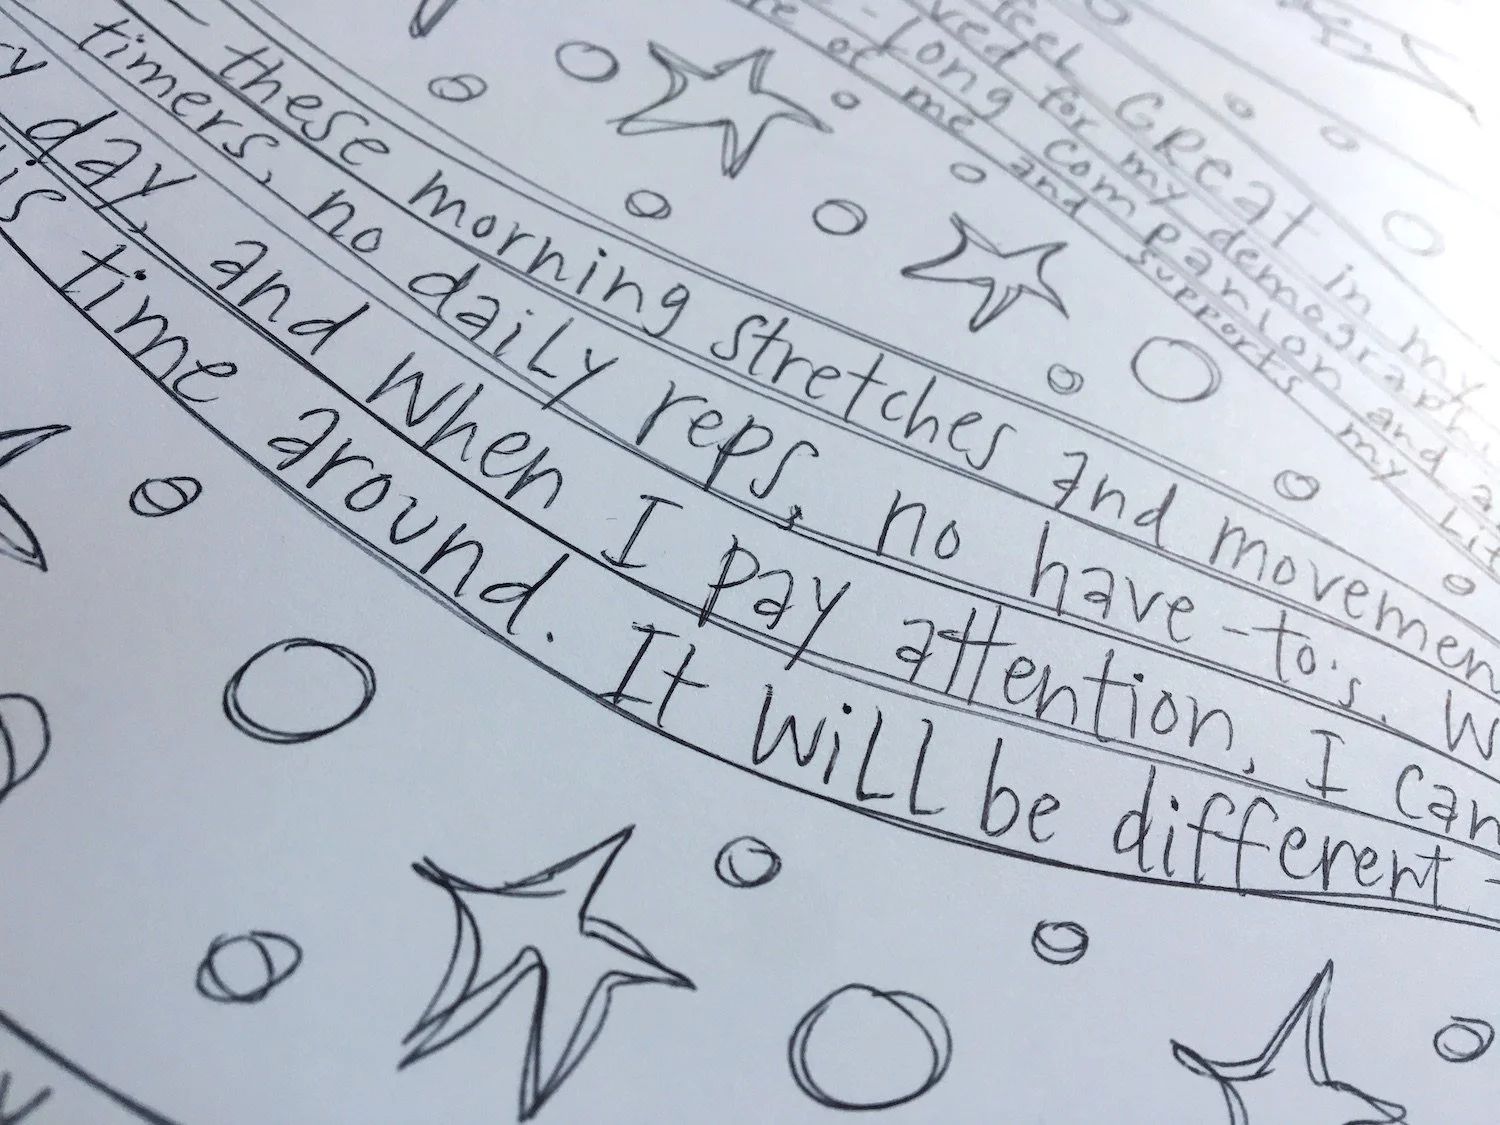 feel GREAT in my
ved for my demographic
- long companion and a
re of me and my Lit
supports
these morning stretches and movemen
timers, no daily reps, no have-to's. W
ry day, and when I pay attention, I can
is time around. It will be different -